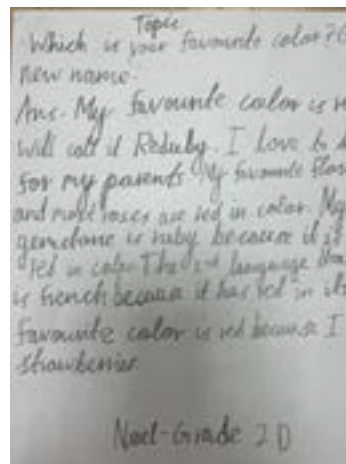 Topic
Which is your favourite color?
new name.
Ans. My favourite color is
will call it Reduby. I Love to
for my parents My favourite
and most roses are red in color. My
gemstone is ruby because it is
red in color. The 2nd language
is french because it has red in
favourite color is red because I
strawberries
Noel-Grade 2D